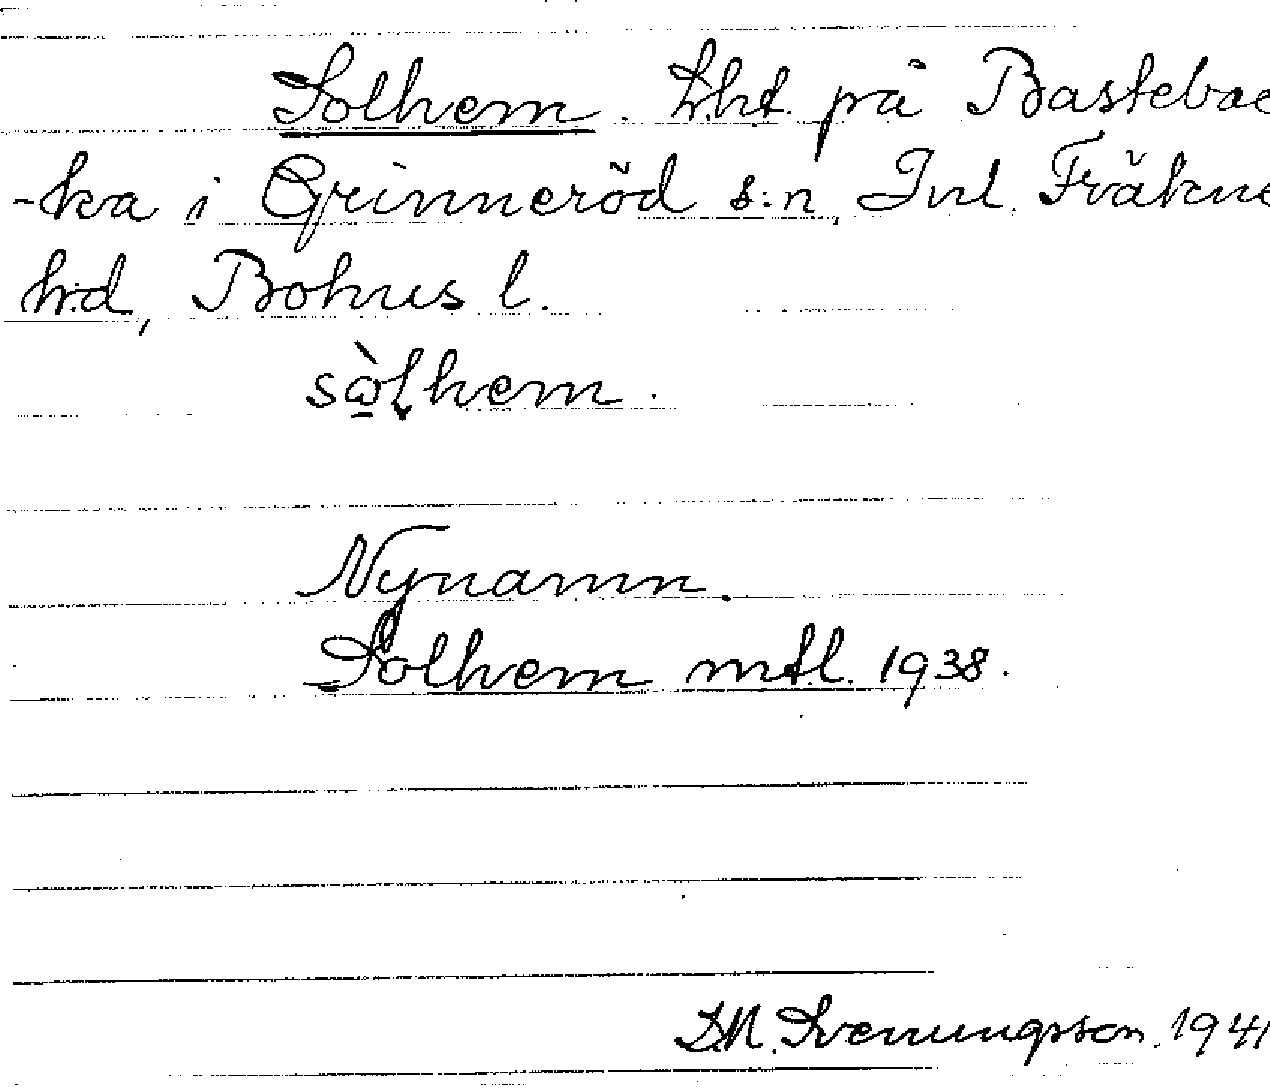 Solhem. Lht. på Bastebac
-ka i Grinneröd s:n, Inl. Fräkne
h:d, Bohus l.
sòlhem.
Nynamn.
Solhem mtl. 1938.
S.M. Svenungsson. 1941